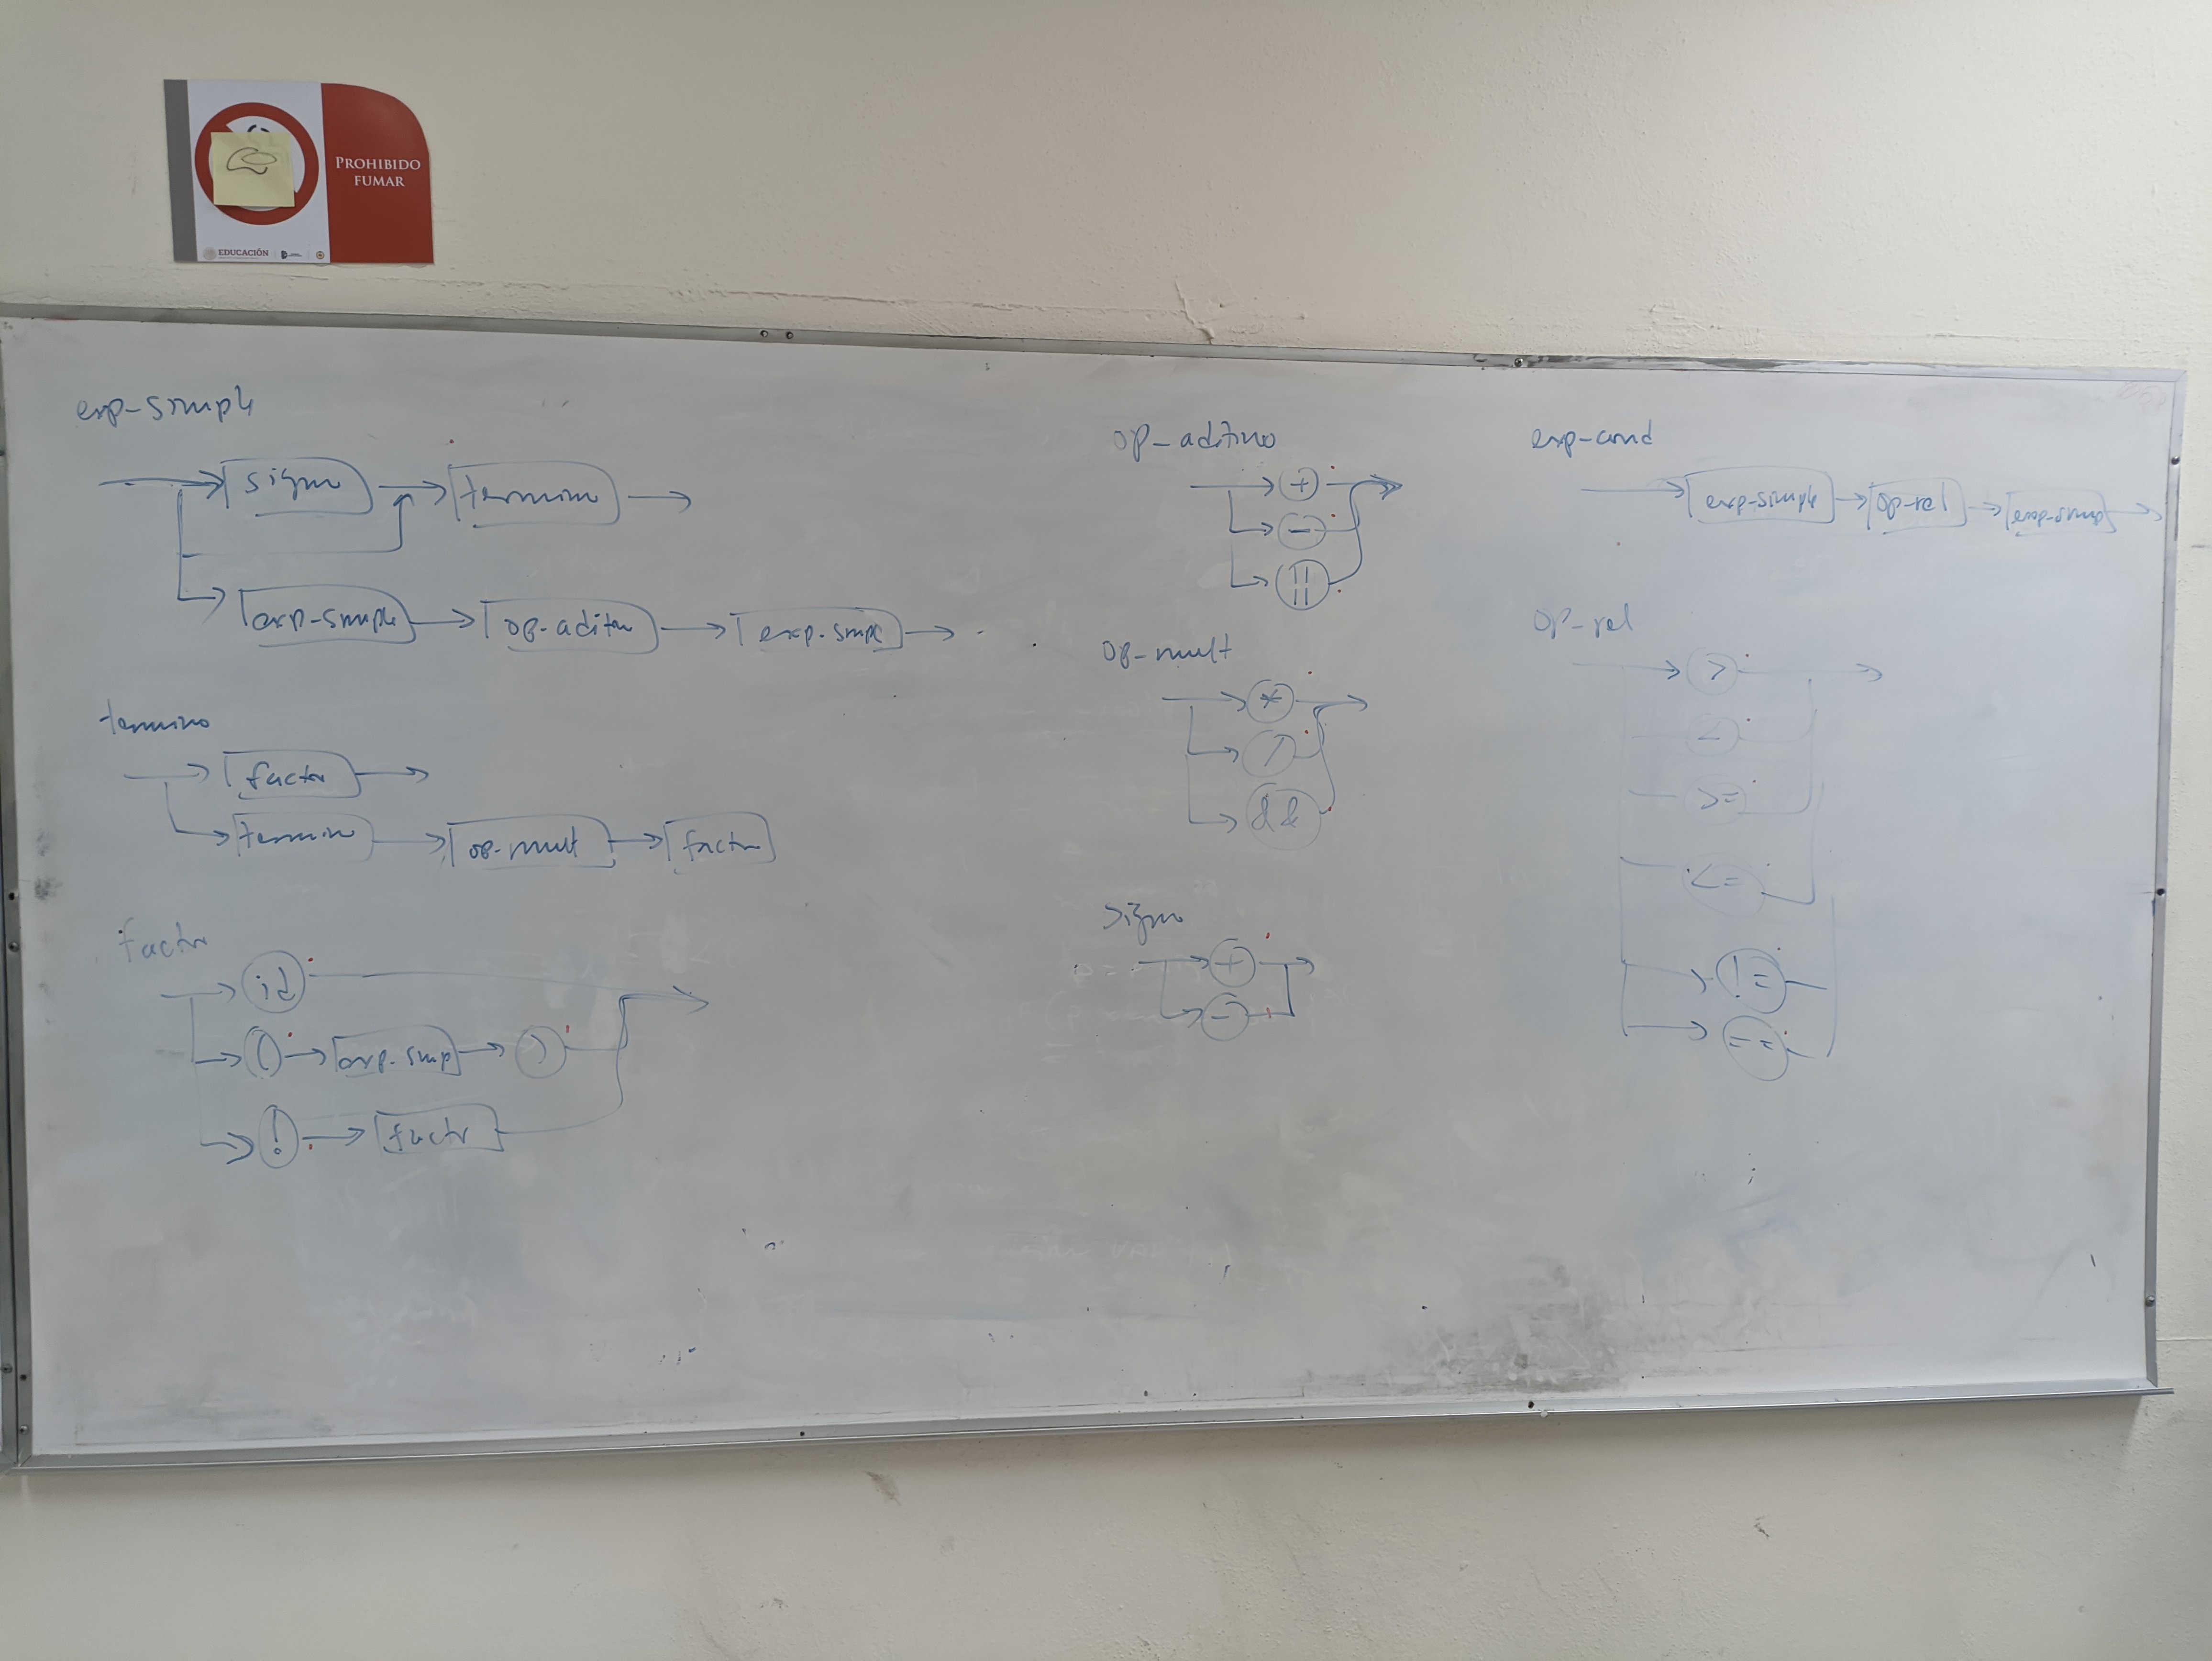 PROHIBIDO
FUMAR
EDUCACIÓN
exp-simple
signo
termino
exp-simple
op-aditivo
exp-simple
termino
factor
termino
op-mult
factor
factor
id
(
exp-simp
)
!
factor
op_aditivo
+
-
||
op_mult
*
/
&&
signo
+
-
exp-cond
exp-simple
op-rel
exp-simp
op_rel
>
<
>=
<=
!=
==